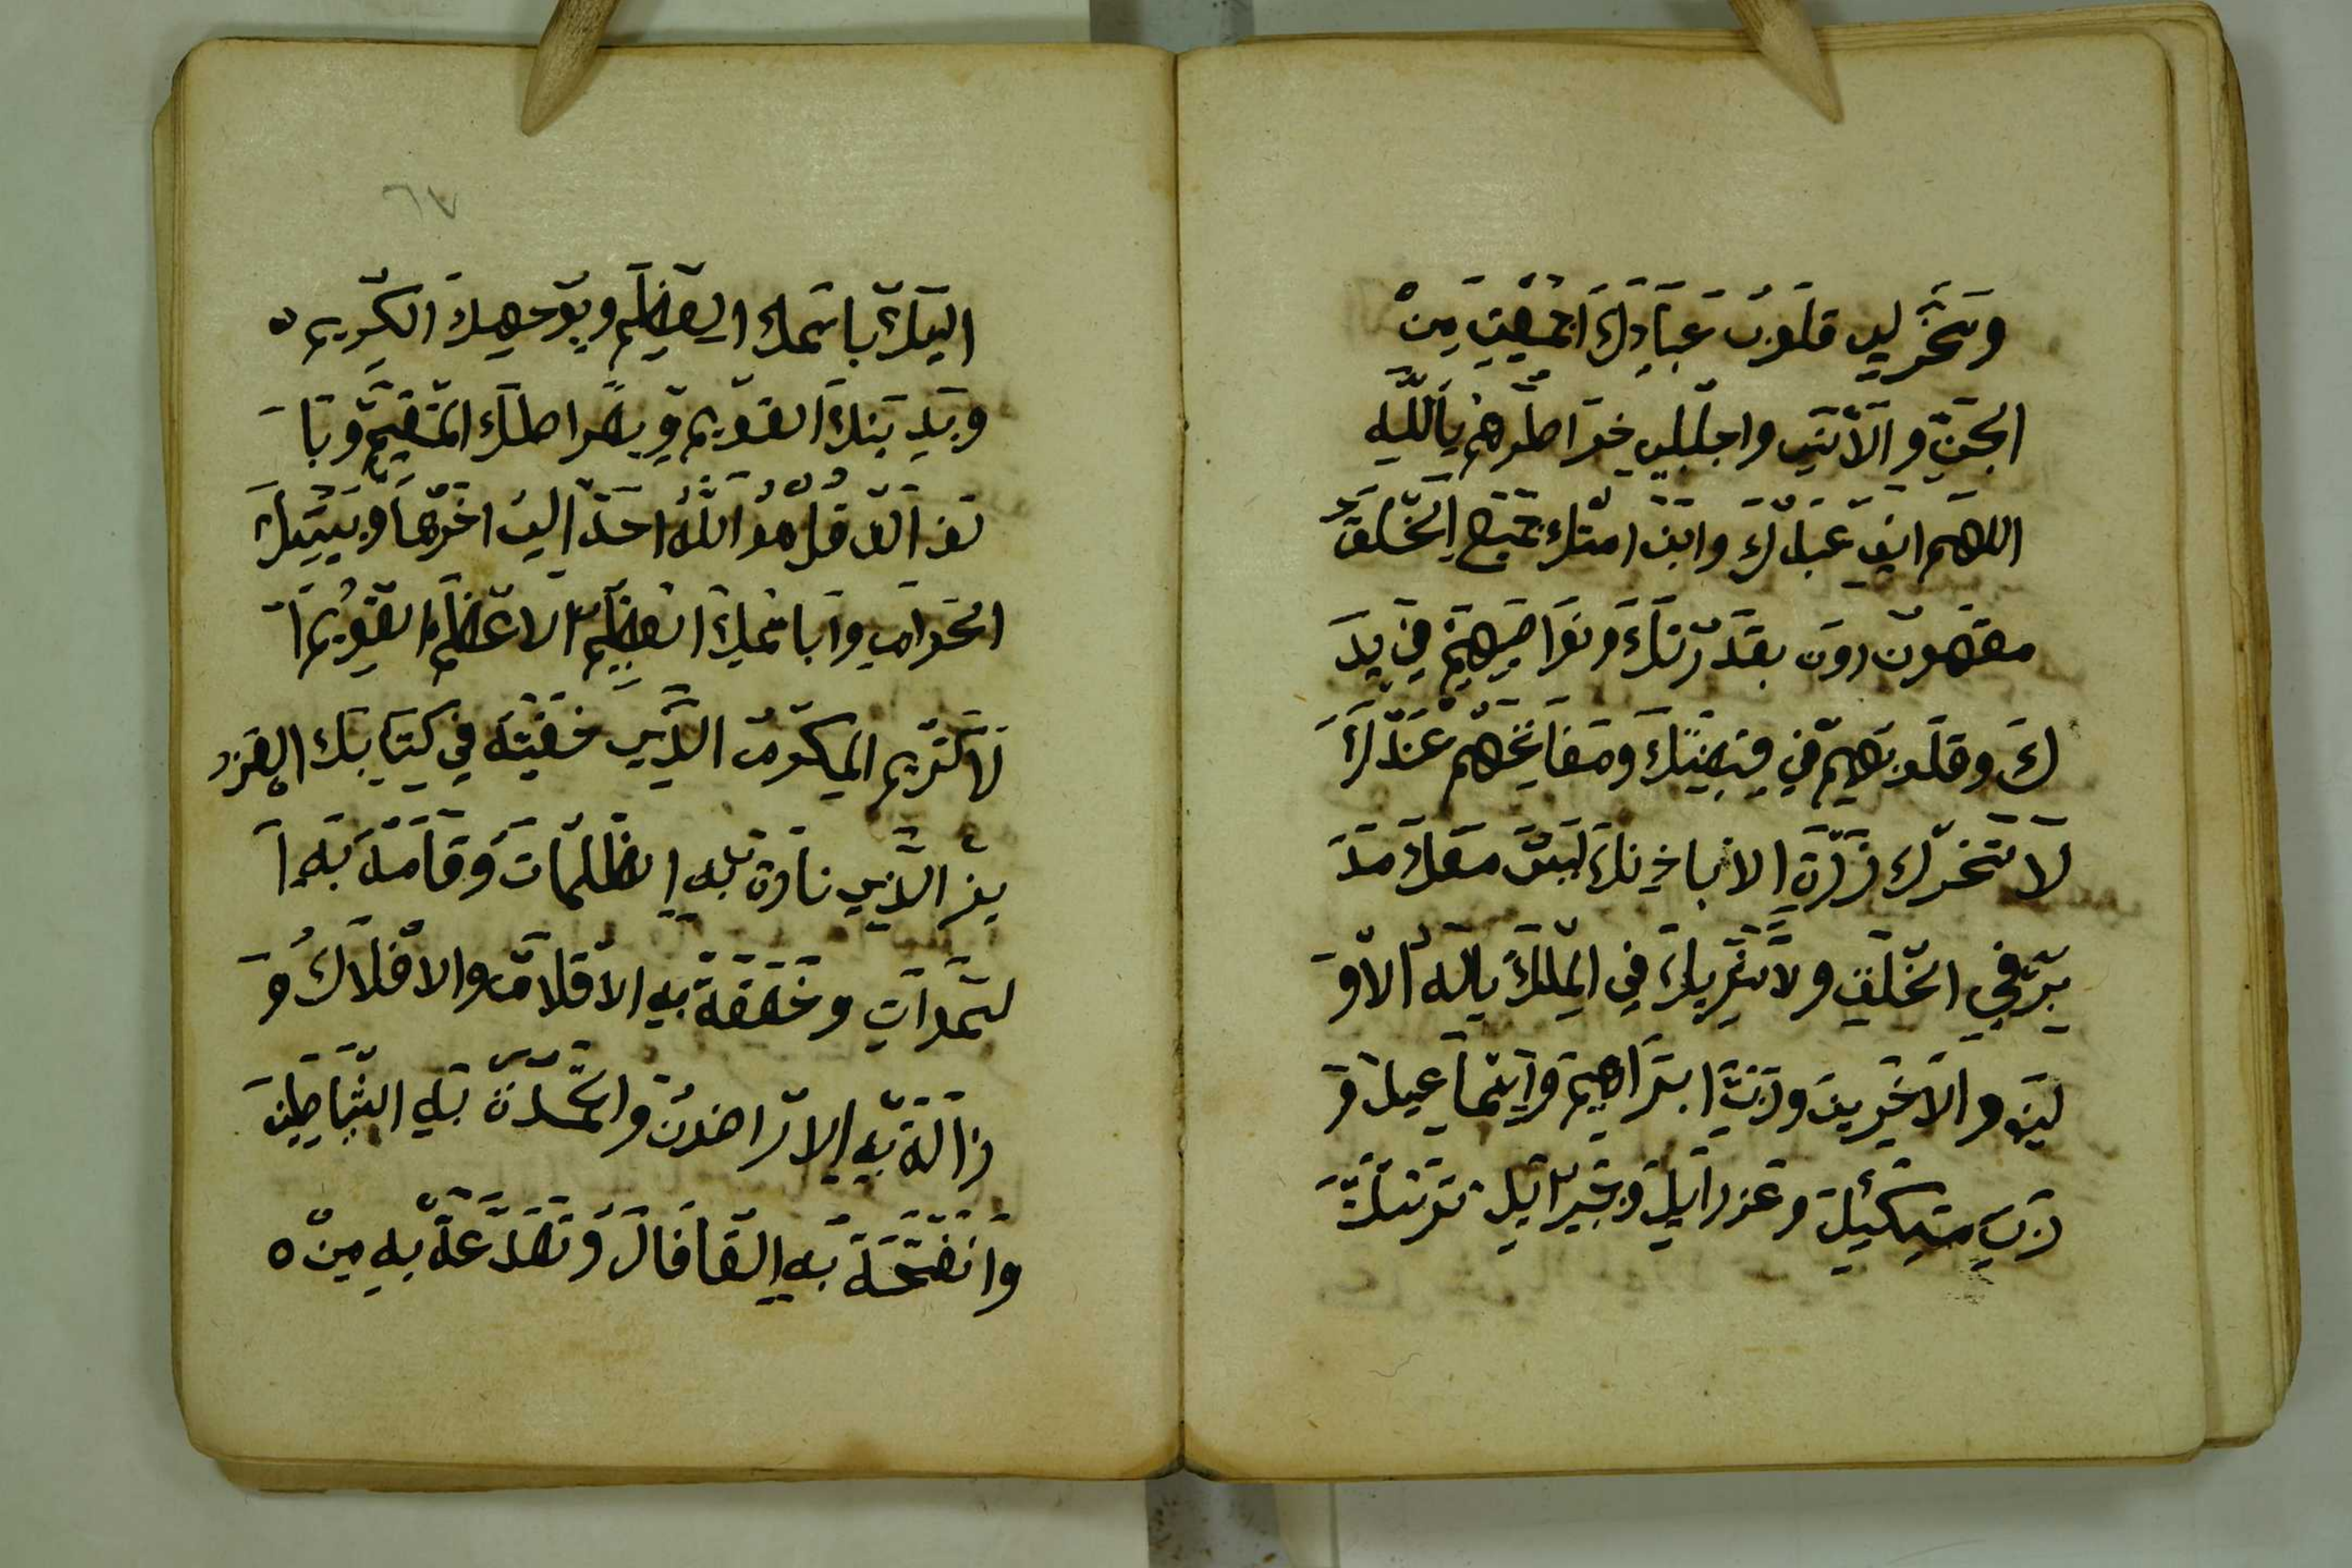 وسخر لي قلوب عبادك اجمعين من
الجن والانس واجلبلي خواطرهم يالله
اللهم اني عبدك وابن امتك جميع الخلق
مقهورون بقدرتك ونواصيهم في يد
ك وقلوبهم في قبضتك ومفاتحهم عندك
لا تتحرك ذرة الا باذنك ليس معك مد
بر في الخلق ولا شريك في الملك ياله الاو
لين والاخرين ورب ابراهيم واسماعيل و
رب ميكئيل وعزرايل وجبرائيل توسلت
٦٧
اليك باسمك العظيم وبوجهك الكريم ه
وبدينك القويم وبصراطك المستقيم وبا
لف الف قل هو الله احد الى اخرها وببيتك
الحرام وباسمك العظيم الاعظم القويم ا
لكريم المكرم الذي خفيته في كتابك العز
يز الذي نارة به الظلمات وقامة به ا
لسمدات وخفقة به الاقلام والافلاك و
زالة به الارضون والخمدة به الشياطين
وانفتحة به القافال وتصدعة به من ه